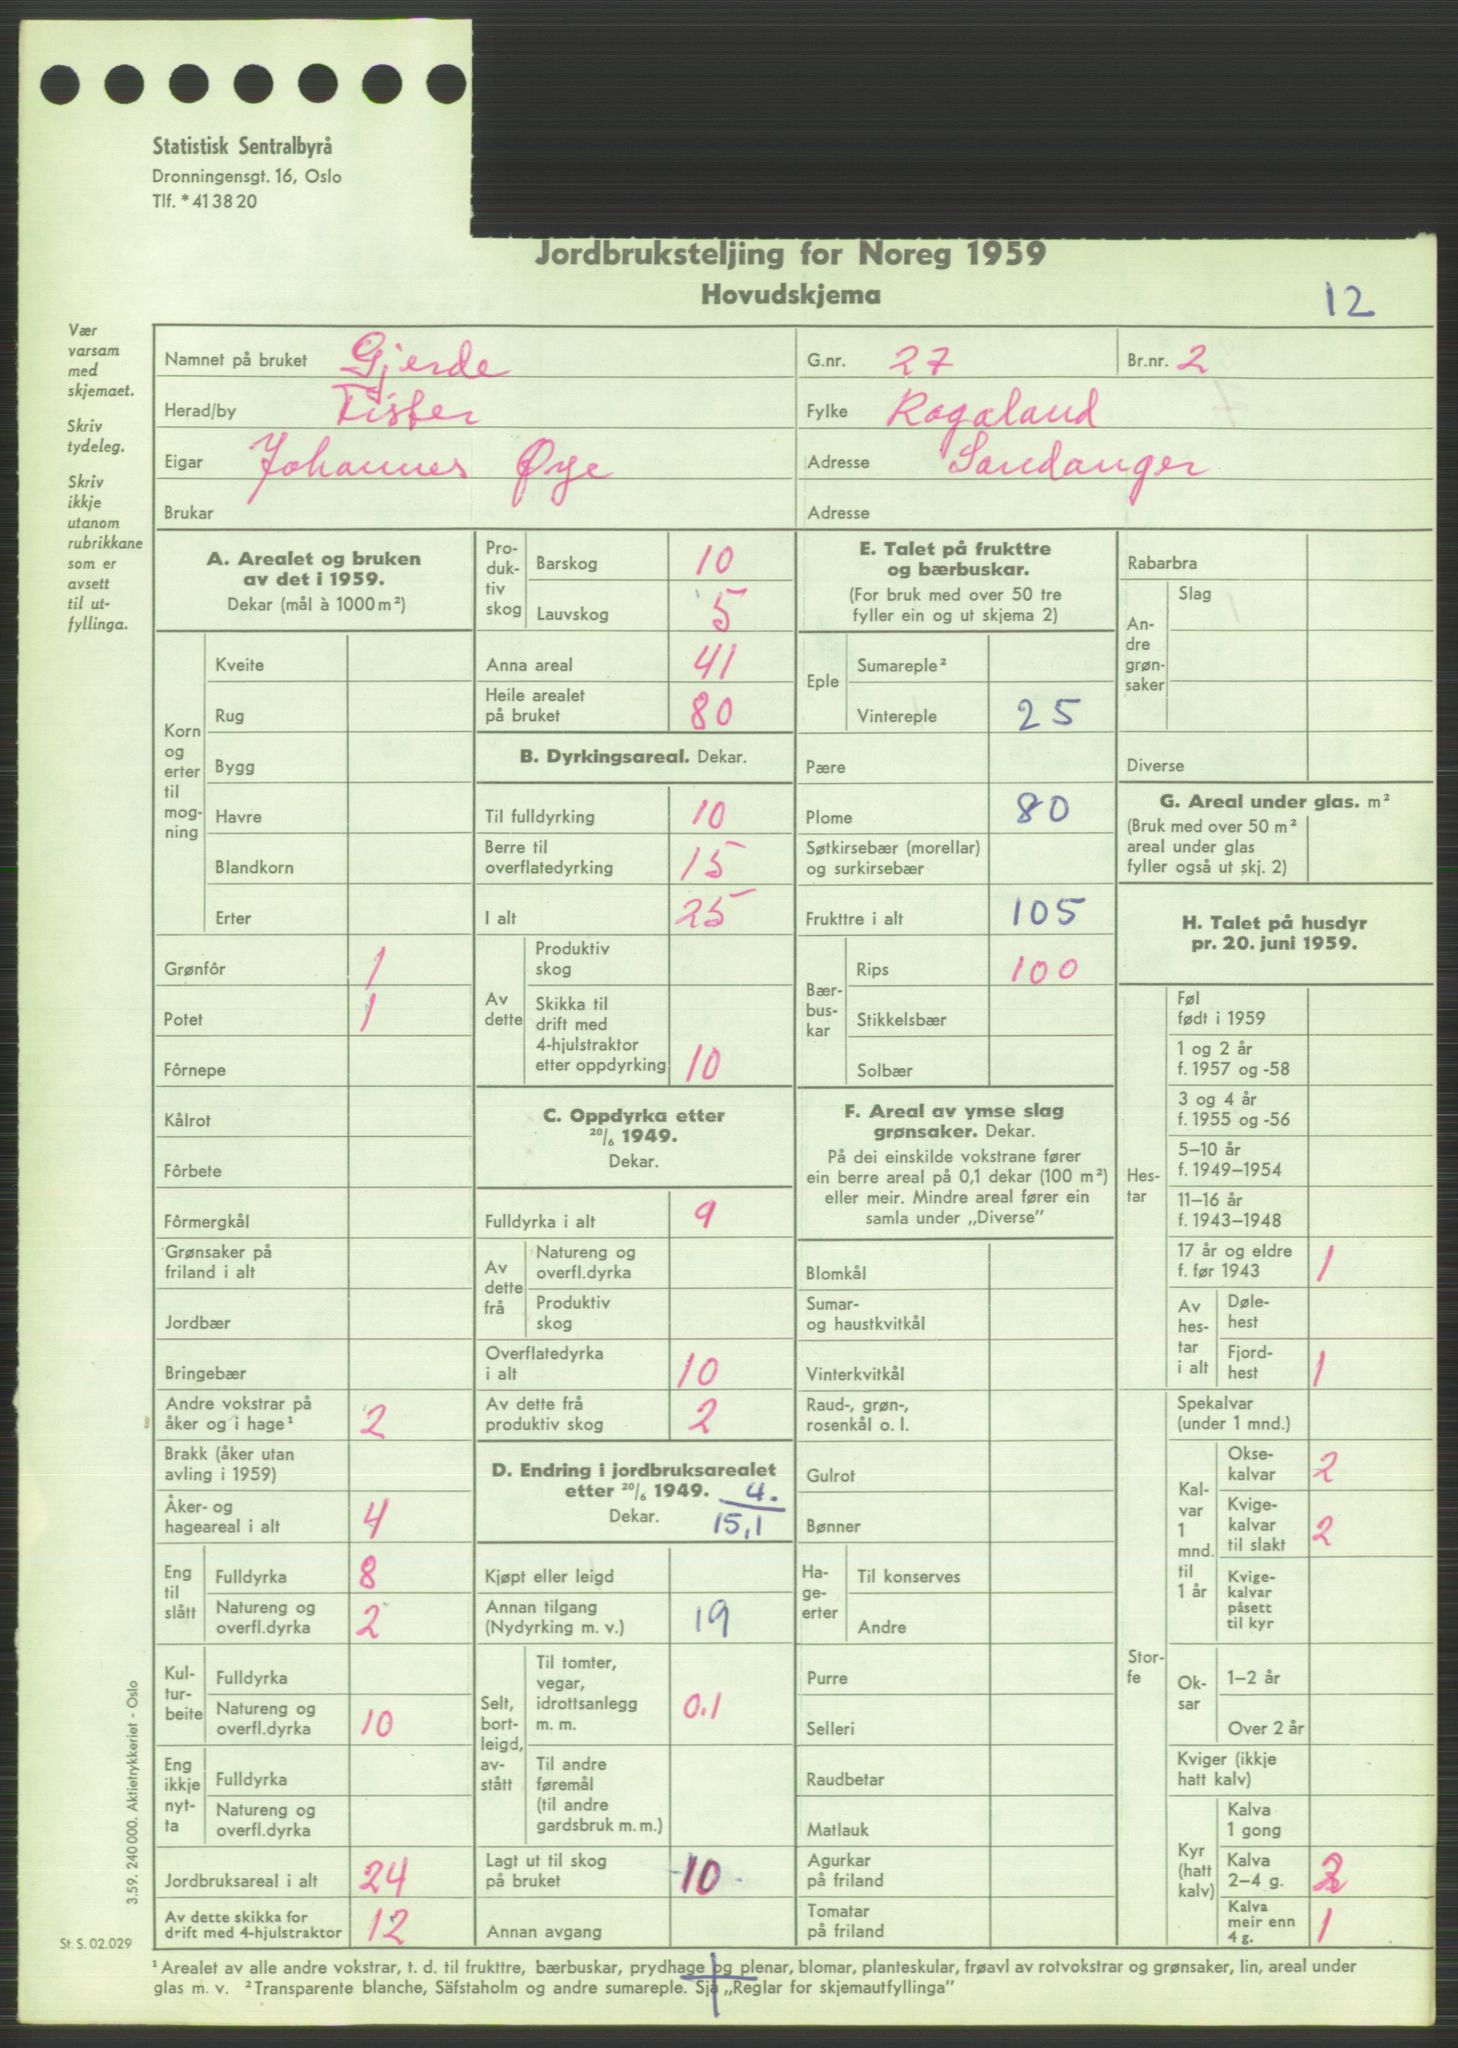 Statistisk Sentralbyrå
Dronningensgt. 16, Oslo
Tlf. * 41 38 20
Jordbruksteljing for Noreg 1959
Hovudskjema
12
Vær
varsam
med
skjemaet.
Skriv
tydeleg.
Skriv
ikkje
utanom
rubrikkane
som er
avsett
til ut-
fyllinga.
Namnet på bruket Gjerde G.nr. 27 Br.nr. 2
Herad/by Fister Fylke Rogaland
Eigar Johannes Øye Adresse Sandanger
Brukar Adresse
A. Arealet og bruken
av det i 1959.
Dekar (mål à 1000 m²)
Korn
og
erter
til
mog-
ning
Kveite
Rug
Bygg
Havre
Blandkorn
Erter
Grønfôr 1
Potet 1
Fôrnepe
Kålrot
Fôrbete
Fôrmergkål
Grønsaker på
friland i alt
Jordbær
Bringebær
Andre vokstrar på
åker og i hage¹ 2
Brakk (åker utan
avling i 1959)
Åker- og
hageareal i alt 4
Eng
til
slått
Fulldyrka 8
Natureng og
overfl.dyrka 2
Kul-
tur-
beite
Fulldyrka
Natureng og
overfl.dyrka 10
Eng
ikkje
nyt-
ta
Fulldyrka
Natureng og
overfl.dyrka
Jordbruksareal i alt 24
Av dette skikka for
drift med 4-hjulstraktor 12
Pro-
duk-
tiv
skog
Barskog 10
Lauvskog 5
Anna areal 41
Heile arealet
på bruket 80
B. Dyrkingsareal. Dekar.
Til fulldyrking 10
Berre til
overflatedyrking 15
I alt 25
Av
dette
Produktiv
skog
Skikka til
drift med
4-hjulstraktor
etter oppdyrking 10
C. Oppdyrka etter
20/6 1949.
Dekar.
Fulldyrka i alt 9
Av
dette
frå
Natureng og
overfl.dyrka
Produktiv
skog
Overflatedyrka
i alt 10
Av dette frå
produktiv skog 2
D. Endring i jordbruksarealet
etter 20/6 1949. 4.
Dekar. 15,1
Kjøpt eller leigd
Annan tilgang
(Nydyrking m. v.) 19
Selt,
bort-
leigd,
av-
stått
Til tomter,
vegar,
idrottsanlegg
m. m. 0.1
Til andre
føremål
(til andre
gardsbruk m. m.)
Lagt ut til skog
på bruket 10
Annan avgang
E. Talet på frukttre
og bærbuskar.
(For bruk med over 50 tre
fyller ein og ut skjema 2)
Eple
Sumareple²
Vintereple 25
Pære
Plome 80
Søtkirsebær (morellar)
og surkirsebær
Frukttre i alt 105
Bær-
bus-
kar
Rips 100
Stikkelsbær
Solbær
F. Areal av ymse slag
grønsaker. Dekar.
På dei einskilde vokstrane fører
ein berre areal på 0,1 dekar (100 m²)
eller meir. Mindre areal fører ein
samla under „Diverse”
Blomkål
Sumar-
og haustkvitkål
Vinterkvitkål
Raud-, grøn-,
rosenkål o. l.
Gulrot
Bønner
Ha-
ge-
erter
Til konserves
Andre
Purre
Selleri
Raudbetar
Matlauk
Agurkar
på friland
Tomatar
på friland
Rabarbra
An-
dre
grøn-
saker
Slag
Diverse
G. Areal under glas. m²
(Bruk med over 50 m²
areal under glas
fyller også ut skj. 2)
H. Talet på husdyr
pr. 20. juni 1959.
Hes-
tar
Føl
født i 1959
1 og 2 år
f. 1957 og -58
3 og 4 år
f. 1955 og -56
5–10 år
f. 1949–1954
11–16 år
f. 1943–1948
17 år og eldre
f. før 1943 1
Av
hes-
tar
i alt
Døle-
hest
Fjord-
hest 1
Stor-
fe
Spekalvar
(under 1 mnd.)
Kal-
var
1
mnd.
til
1 år
Okse-
kalvar 2
Kvige-
kalvar
til slakt 2
Kvige-
kalvar
påsett
til kyr
Ok-
sar
1–2 år
Over 2 år
Kviger (ikkje
hatt kalv)
Kyr
(hatt
kalv)
Kalva
1 gong
Kalva
2–4 g.
Kalva
meir enn
4 g. 1
3.59. 240 000. Aktietrykkeriet - Oslo
St. S. 02.029
¹ Arealet av alle andre vokstrar, t. d. til frukttre, bærbuskar, prydhage og plenar, blomar, planteskular, frøavl av rotvokstrar og grønsaker, lin, areal under
glas m. v. ² Transparente blanche, Säfstaholm og andre sumareple. Sjå „Reglar for skjemautfyllinga”